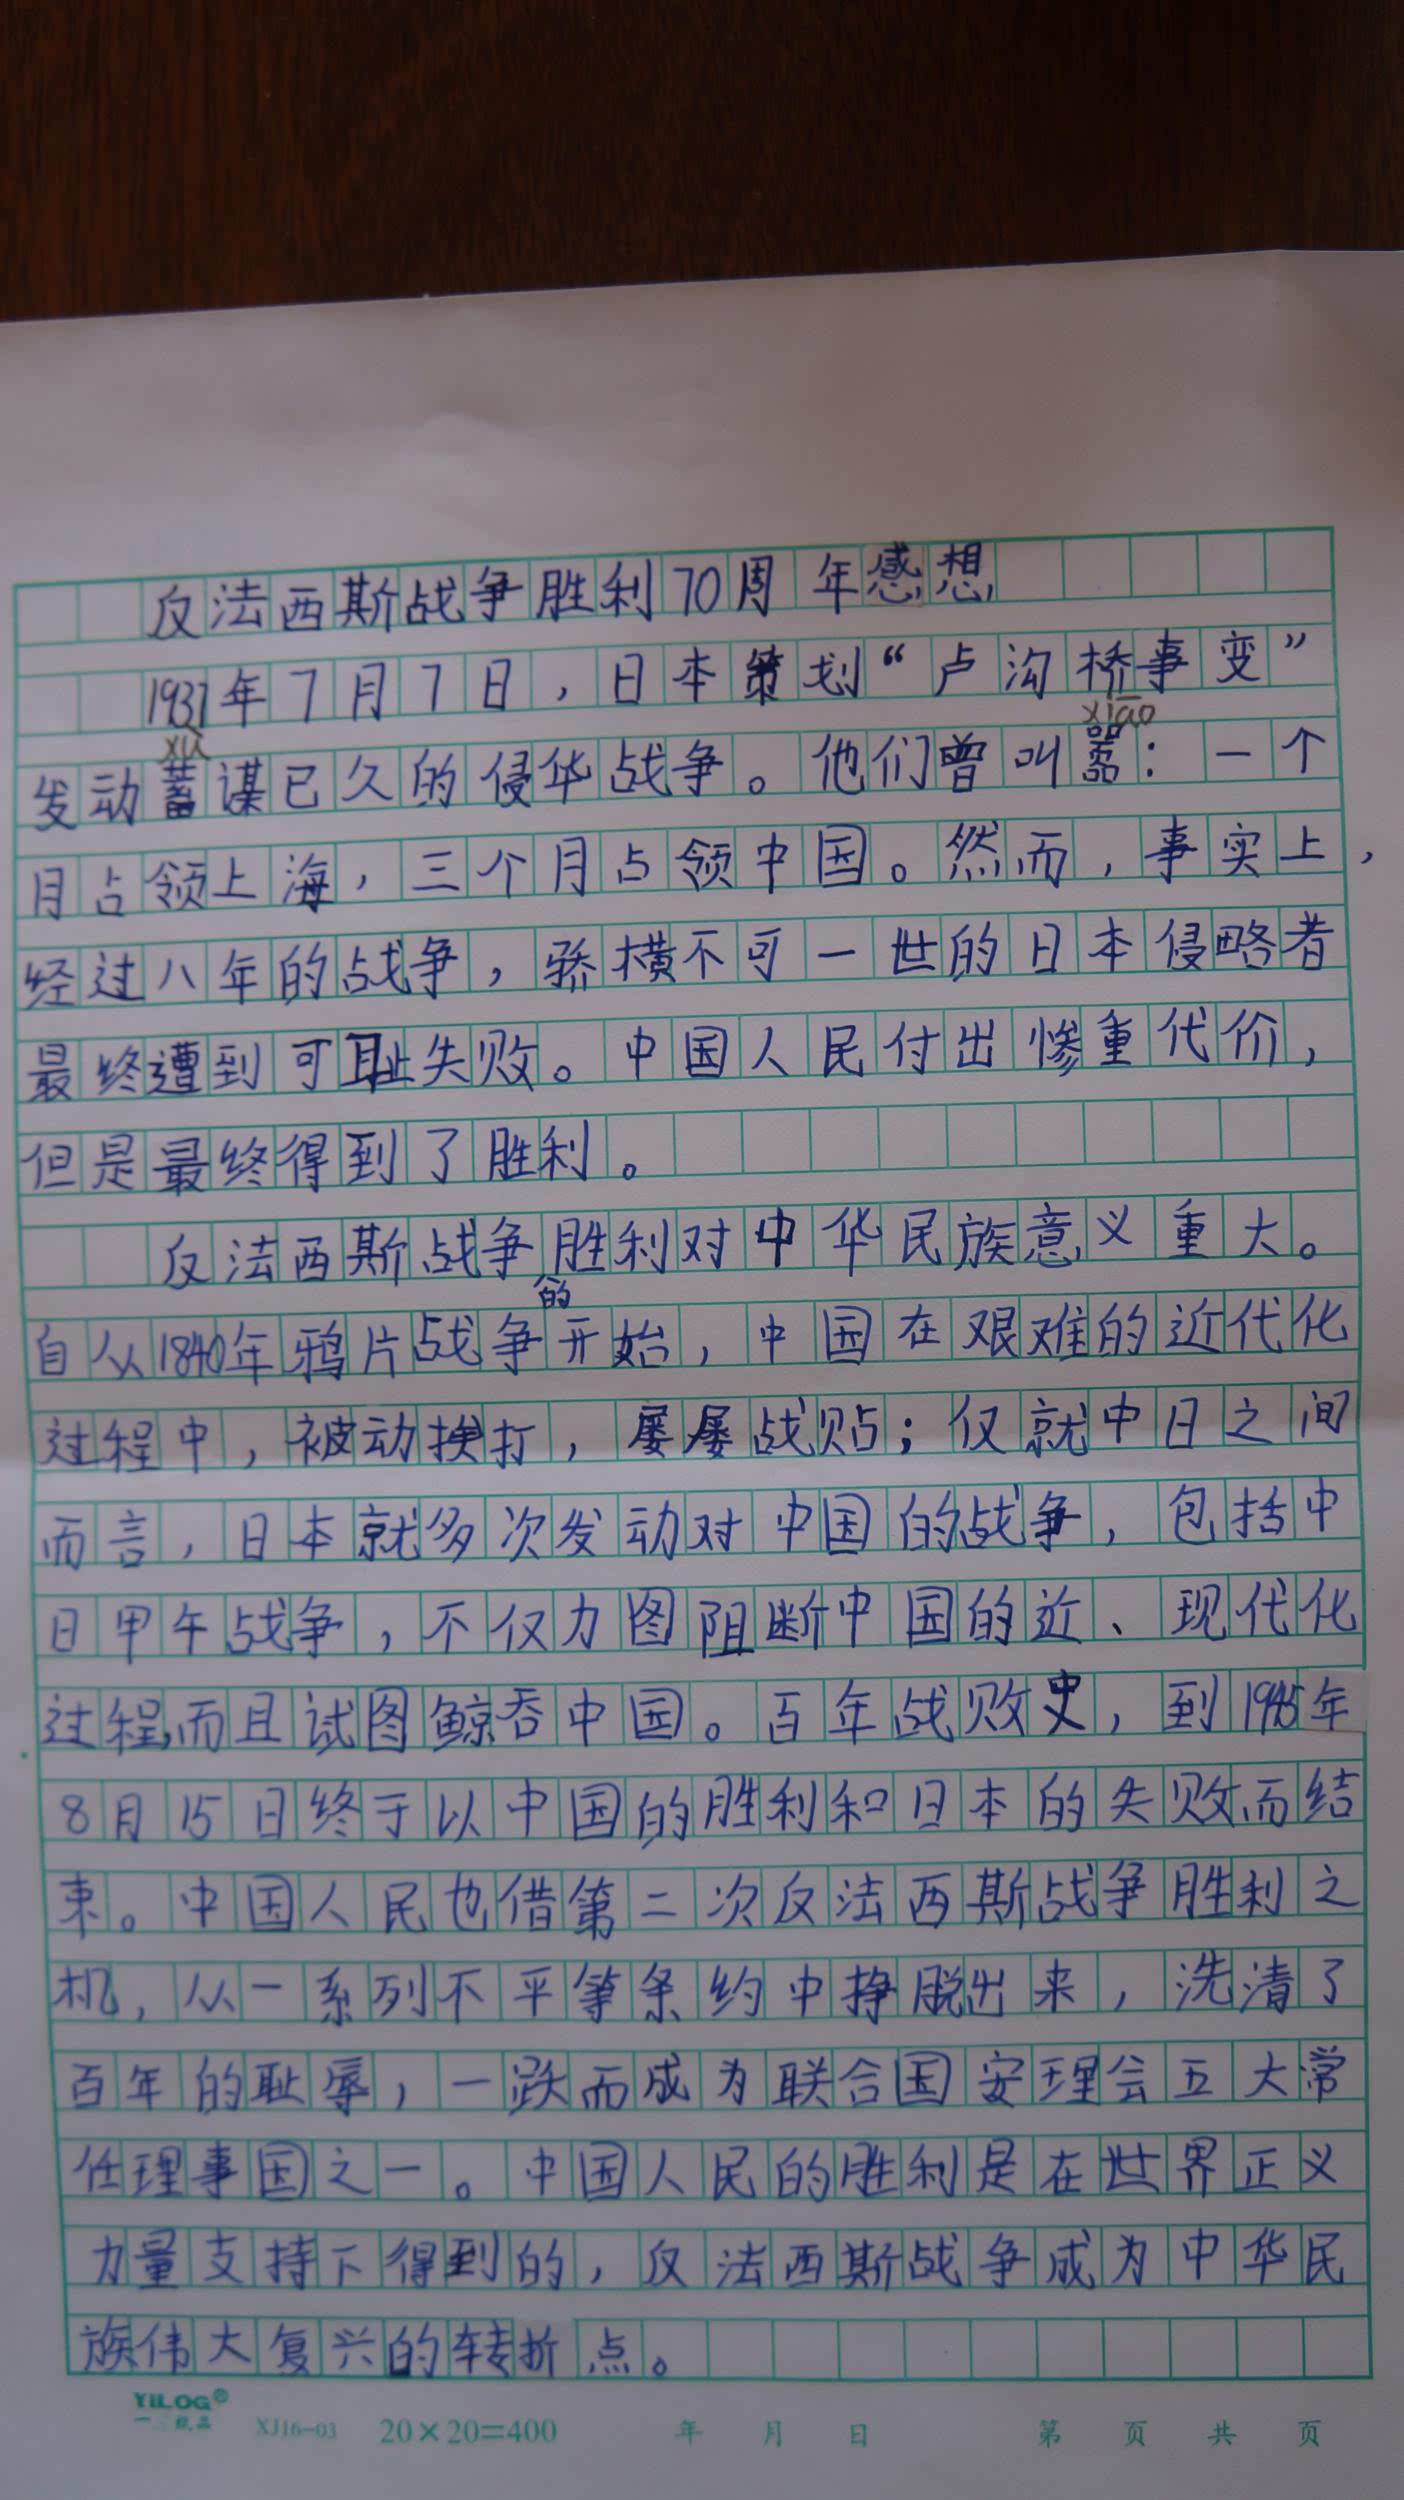 反法西斯战争胜利70周年感想
1937年7月7日，日本策划“卢沟桥事变”
xù xiāo
发动蓄谋已久的侵华战争。他们曾叫嚣：一个
月占领上海，三个月占领中国。然而，事实上，
经过八年的战争，骄横不可一世的日本侵略者
最终遭到可耻失败。中国人民付出惨重代价，
但是最终得到了胜利。
反法西斯战争胜利对中华民族意义重大。
的
自从1840年鸦片战争开始，中国在艰难的近代化
过程中，被动挨打，屡屡战败；仅就中日之间
而言，日本就多次发动对中国的战争，包括中
日甲午战争，不仅力图阻断中国的近、现代化
过程，而且试图鲸吞中国。百年战败史，到1945年
8月15日终于以中国的胜利和日本的失败而结
束。中国人民也借第二次反法西斯战争胜利之
机，从一系列不平等条约中挣脱出来，洗清了
百年的耻辱，一跃而成为联合国安理会五大常
任理事国之一。中国人民的胜利是在世界正义
力量支持下得到的，反法西斯战争成为中华民
族伟大复兴的转折点。
YILOG®
XJ16-03 20×20=400 年 月 日 第 页 共 页